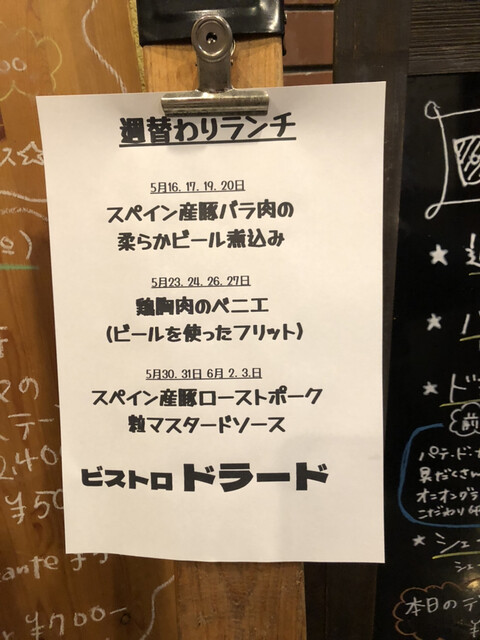 週替わりランチ
5月16. 17. 19. 20日
スペイン産豚バラ肉の
柔らかビール煮込み
5月23. 24. 26. 27日
鶏胸肉のベニエ
(ビールを使ったフリット)
5月30. 31日 6月 2. 3.日
スペイン産豚ローストポーク
粒マスタードソース
ビストロ ドラード
ス
マの
ステー
2400
¥50
ante
¥700-
★
★
★ ド
前
パテ・ド・
具だくさん
オニオングラ
こだわり
★ シェ
シェ
本日のデ